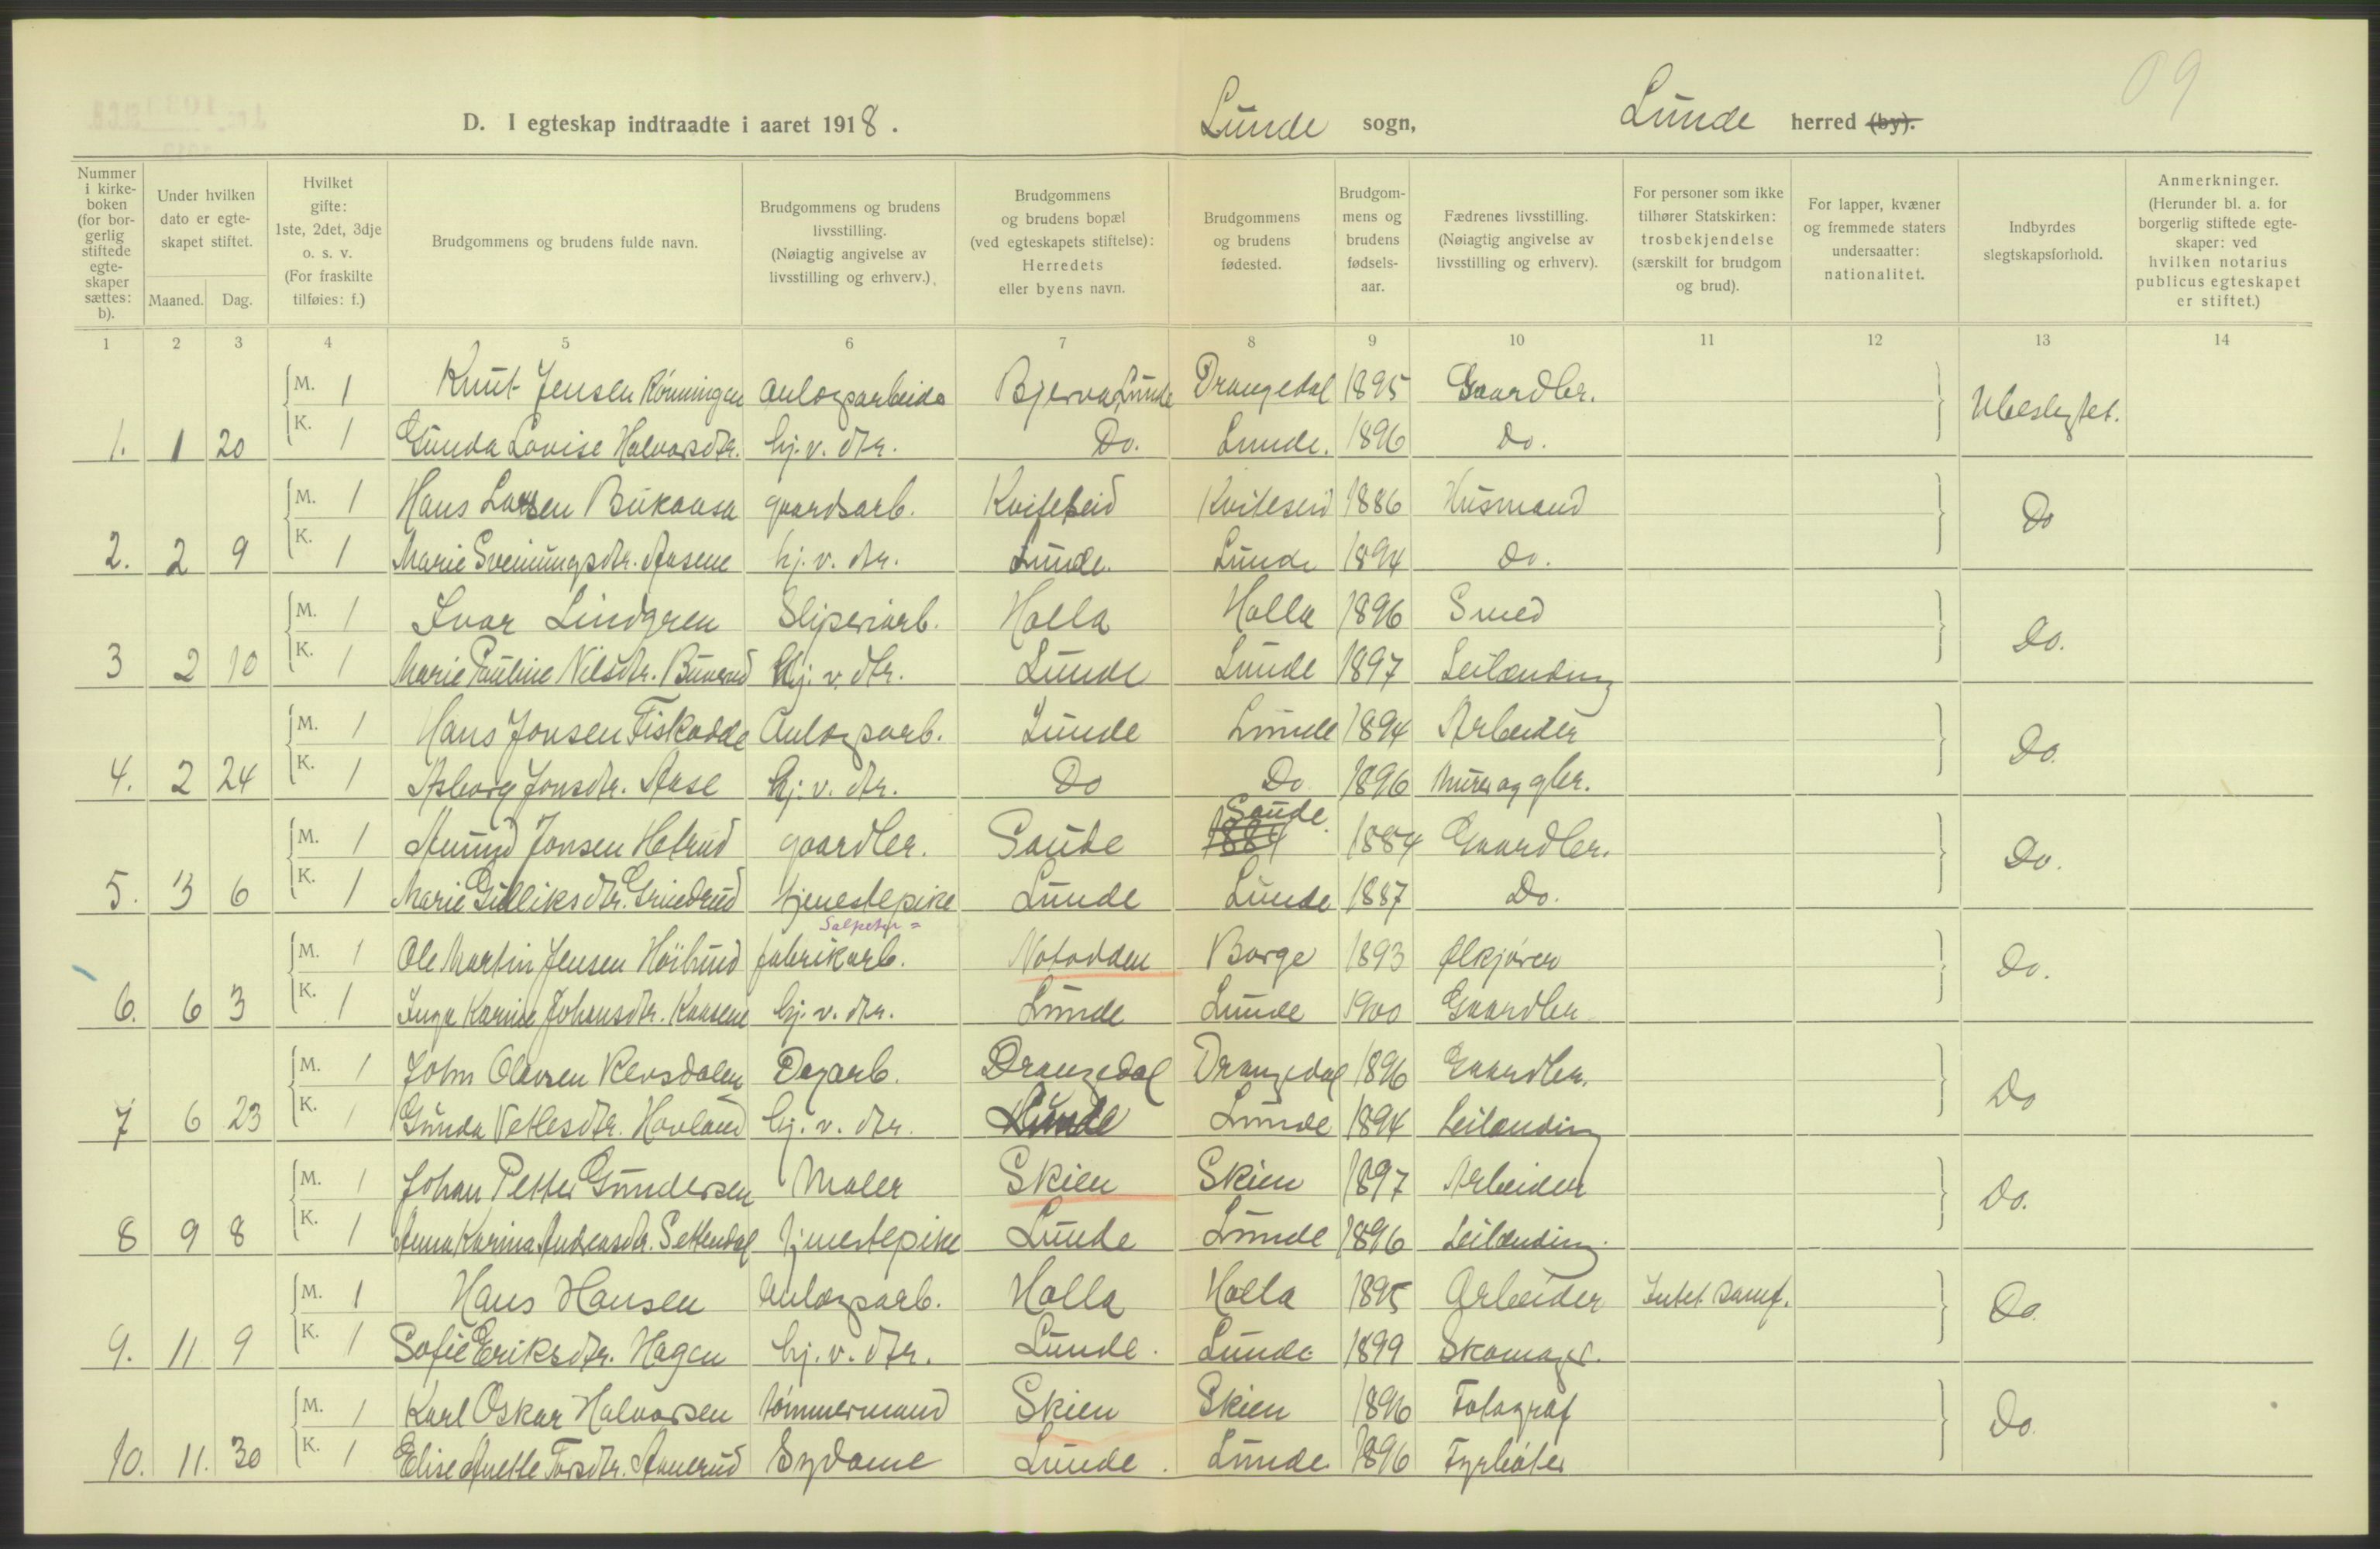 09
D. I egteskap indtraadte i aaret 1918. Lunde sogn, Lunde herred (by).
Nummer i kirkeboken (for borgerlig stiftede egteskaper sættes: b). Under hvilken dato er egteskapet stiftet. Maaned. Dag. Hvilket gifte: 1ste, 2det, 3dje o. s. v. (For fraskilte tilføies: f.) Brudgommens og brudens fulde navn. Brudgommens og brudens livsstilling. (Nøiagtig angivelse av livsstilling og erhverv.) Brudgommens og brudens bopæl (ved egteskapets stiftelse): Herredets eller byens navn. Brudgommens og brudens fødested. Brudgommens og brudens fødselsaar. Fædrenes livsstilling. (Nøiagtig angivelse av livsstilling og erhverv). For personer som ikke tilhører Statskirken: trosbekjendelse (særskilt for brudgom og brud). For lapper, kvæner og fremmede staters undersaatter: nationalitet. Indbyrdes slegtskapsforhold. Anmerkninger. (Herunder bl. a. for borgerlig stiftede egteskaper: ved hvilken notarius publicus egteskapet er stiftet.)
1 2 3 4 5 6 7 8 9 10 11 12 13 14
M. 1 Knut Jensen Rønningen Anlægsarbeide Bjerva Lunde Drangedal 1895 Gaardbr. Ubeslegtet.
1. 1 20 K. 1 Gunda Lovise Halvorsdtr. hj. v. dtr. Do. Lunde. 1896 do.
M. 1 Hans Larsen Bukaasa gaardsarb. Kviteseid Kviteseid 1886 Husmand Do
2. 2 9 K. 1 Marie Sveinungsdtr. Aasene hj. v. dtr. Lunde. Lunde 1894 do.
M. 1 Ivar Lindgren Sliperiarb. Holla Holla 1896 Smed Do.
3 2 10 K. 1 Marie Pauline Nilsdtr. hj. v. dtr. Lunde Lunde 1897 Leilænding
M. 1 Hans Jonsen Fiskodde Anlægsarb. Lunde Lunde 1894 Arbeider Do.
4. 2 24 K. 1 Asborg Jonsdtr. Aase hj. v. dtr. Do Do 1896 Murer og gbr.
M. 1 Amund Jonsen gaardbr. Saude 1884 Saude. 1884 Gaardbr. Do.
5. 3 6 K. 1 Marie Gulliksdtr. Grinderud tjenestepike Lunde Lunde 1887 Do.
M. 1 Ole Martin Jensen Salpeter= fabrikarb. Notodden Borge 1893 Ølkjører Do.
6. 6 3 K. 1 Inga Karine Johansdtr. Kaasene hj. v. dtr. Lunde Lunde 1900 Gaardbr
M. 1 John Olavsen Revsdalen Dagarb. Drangedal Drangedal 1896 Gaardbr. Do
7 6 23 K. 1 Gunda Vetlesdtr. Hovland hj. v. dtr. Lunde Lunde 1894 Leilænding
M. 1 Johan Petter Gundersen Maler Skien Skien 1897 Arbeider Do.
8 9 8 K. 1 Anna Karina Andreasdtr. Settendal tjenestepike Lunde Lunde 1896 Leilænding.
M. 1 Hans Hansen Anlægsarb. Holla Holla 1895 Arbeider Intet samf. Do.
9. 11 9 K. 1 Sofie Eriksdtr. Hagen hj. v. dtr. Lunde. Lunde 1899 Skomager.
M. 1 Karl Oskar Halvorsen tømmermand Skien Skien 1896 Fotograf Do.
10. 11. 30 K. 1 Elise Anette Torsdtr. Aanerud Sydame Lunde. Lunde 1896 Fyrbøter